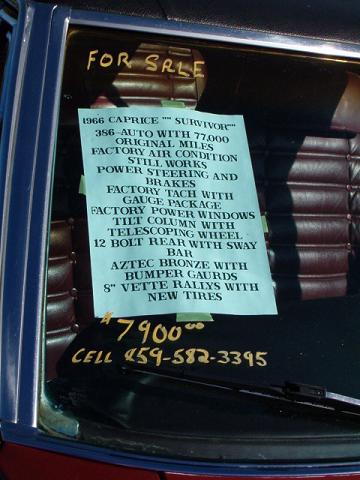 FOR SALE
1966 CAPRICE "" SURVIVOR""
386-AUTO WITH 77,000
ORIGINAL MILES
FACTORY AIR CONDITION
STILL WORKS
POWER STEERING AND
BRAKES
FACTORY TACH WITH
GAUGE PACKAGE
FACTORY POWER WINDOWS
TILT COLUMN WITH
TELESCOPING WHEEL
12 BOLT REAR WITH SWAY
BAR
AZTEC BRONZE WITH
BUMPER GAURDS
8" VETTE RALLYS WITH
NEW TIRES
$7900.00
CELL 859-582-3395